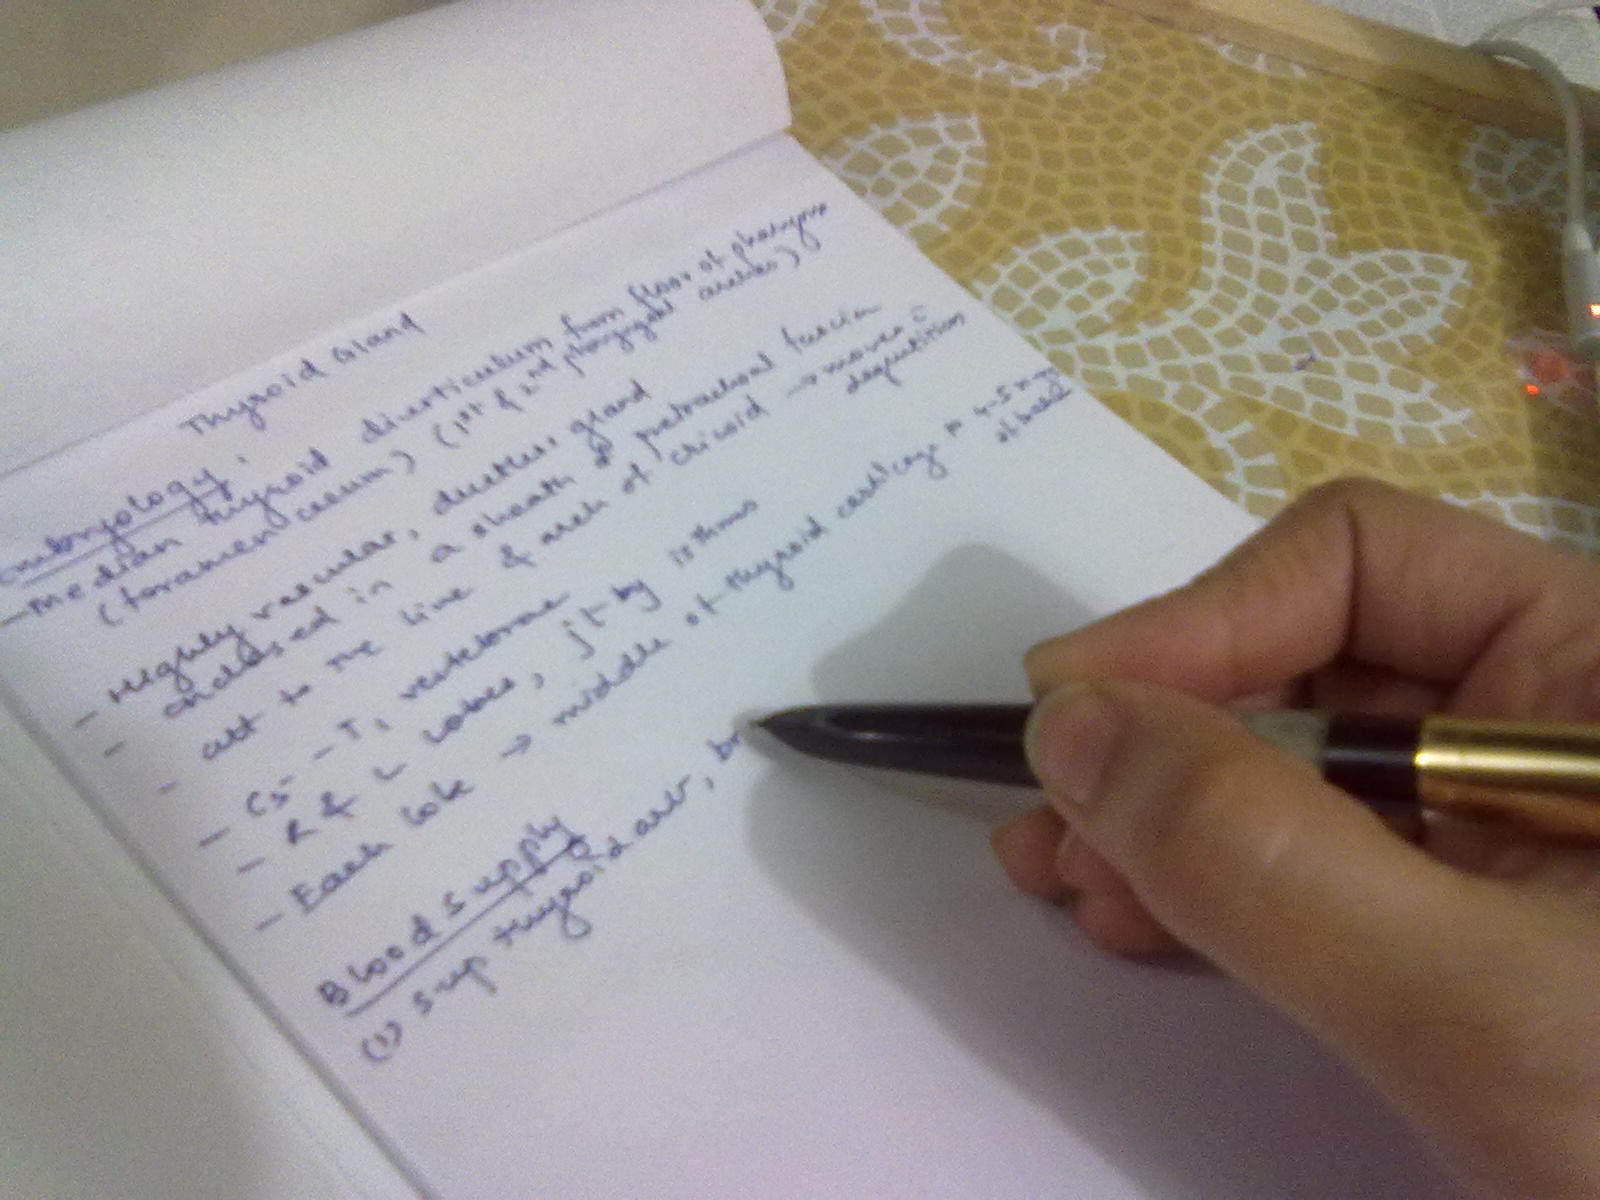 Thyroid Gland
Embryology:
- Median thyroid diverticulum from floor of pharynx
(foramen caecum) (1st & 2nd pharyngeal arches)
- Highly vascular, ductless gland
- enclosed in a sheath of pretracheal fascia
- att to the line & arch of cricoid → moves c̄
deglutition
- C5 - T1 vertebrae
- R & L lobes, jt by isthmus
- Each lobe → middle of thyroid cartilage to 4-5
of
Blood Supply
(1) sup thyroid art, br